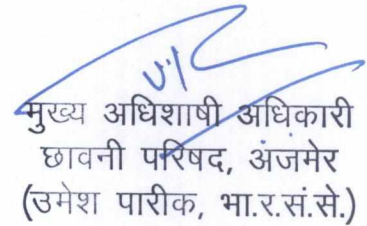 मुख्य अधिशाषी अधिकारी
छावनी परिषद, अजमेर
(उमेश पारीक, भा.र.सं.से.)